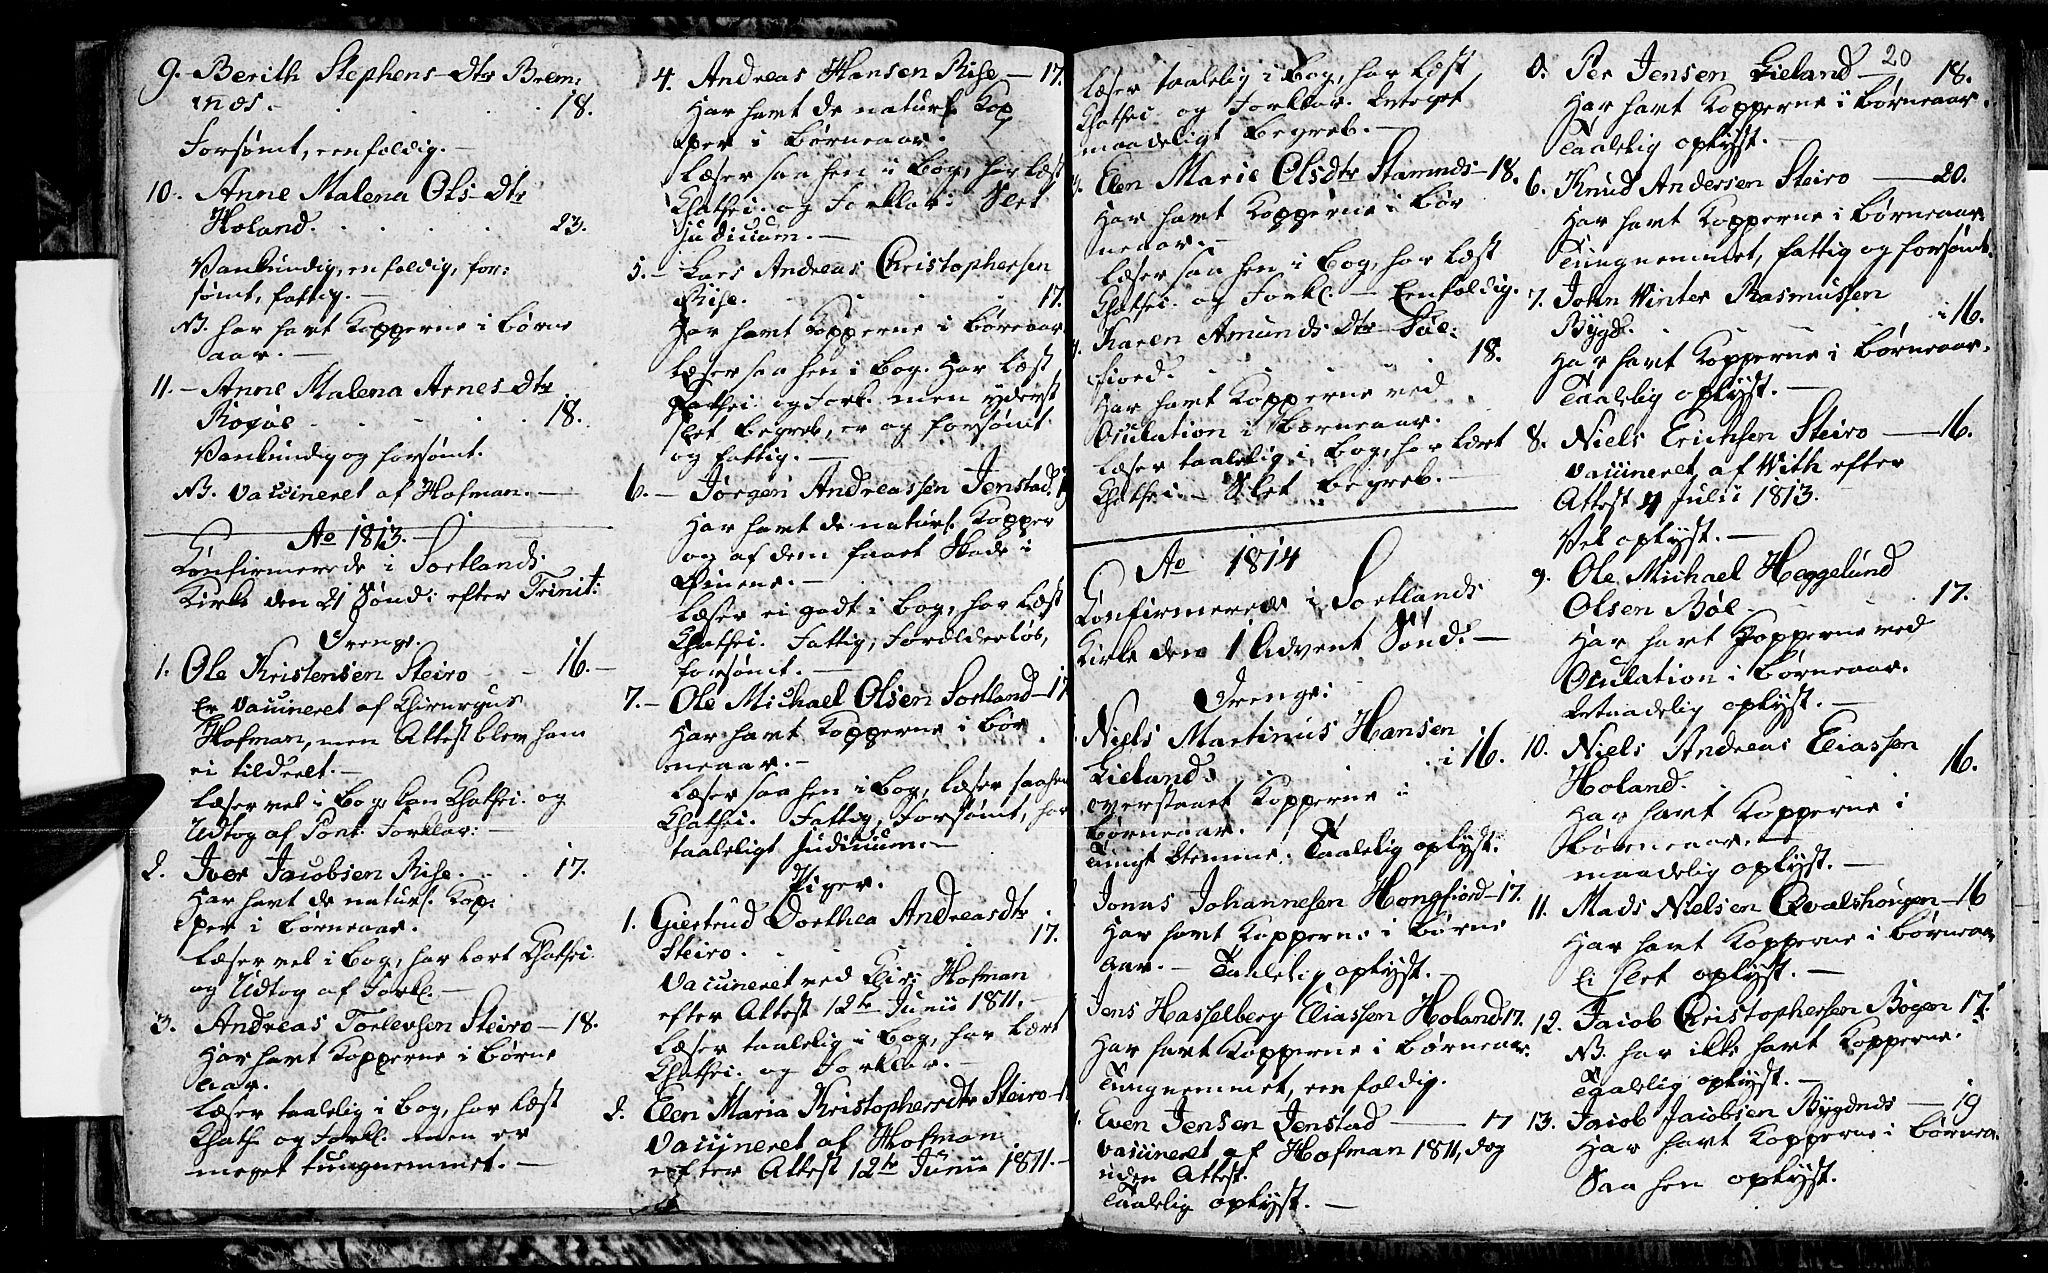 9. Berith Stephens-Dtr Brem:
næs. 18.
Forsømt, eenfoldig. -
10. Anne Malena Ols-Dtr
Holand. 23.
Vankundig, enfoldig, for:
sømt, fattig. -
NB. har havt Kopperne i Børne
aar. -
11. - Anne Malena Arnes-Dtr
18.
Vankundig og forsømt.
NB. Vaccineret af Hofman. -
Ao 1813. -
Confirmerede i Sortlands
Kirke den 21 Sønd: efter Trinit:
Drenge.
1. Ole Kristensen Steiro - 16. -
Er Vaccineret af Chirurgus
Hofman, men Attest blev ham
ei tildeelt. -
Læser vel i Bog, kan Cathec. og
Udtog af Pont. Forklar: -
2. Iver Jacobsen Rise. 17.
Har havt de naturl. Kop:
per i Børneaar.
Læser vel i Bog, har lært Cathec.
og Udtog af Forkl. -
3. Andreas Torlevsen Steiro - 18.
Har havt Kopperne i Børne
aar.
Læser taalelig i Bog, har læst
Cathe og Forkl. men er
meget tungnemmet. -
4. Andreas Hansen Rise - 17.
Har havt de naturl. Kop
per i Børneaar.
Læser saa hen i Bog, har læst
Cathec. og Forklar: Slet
judicium. -
5. - Lars Andreas Christophersen
Rise. 17.
Har havt Kopperne i Børneaar
Læser saa hen i Bog. Har læst
Cathec. og Forkl. men yderst
slet begreb, er og forsømt
og fattig. -
6. - Jørgen Andreassen Jenstad.
Har havt de naturl. Kopper
og af dem faaet Skade i
Øinene. -
Læser ei godt i Bog, har læst
Cathec. Fattig, Forældreløs,
forsømt. -
7. - Ole Michael Olsen Sortland - 17
Har havt Kopperne i Bør
neaar. -
Læser saa hen i Bog, læser saa hen
Cathec. Fattig, Forsømt, har
taaleligt judicium. -
Piger.
1. Giertrud Dorthea Andreasdtr
Steiro. 17.
Vaccineret ved Chir: Hofman
efter Attest 12te Junii 1811. -
Læser taalelig i Bog, har lært
Cathec. og Forklar. -
2. Elen Maria Kristophersdtr Steiro -
Vaccineret af Hofman
efter Attest 12te Junii 1811. -
20
Læser taalelig i Bog, har læst
Cathec. og Forklar.
maadeligt begreb. -
Elen Marie Olsdtr Stamnæs - 18.
Har havt Kopperne i Bør
neaar. -
Læser saa hen i Bog, har læst
Cathec. og Forkl. - Eenfoldig.
Karen Amunds Dtr
fiord. 18.
Har havt Kopperne ved
Oculation i Børneaar.
Læser taalelig i Bog, har lært
Cathec. - Slet begreb. -
Ao 1814
Confirmerede i Sortlands
Kirke den 1 Advent Sønd: -
Drenge:
Niels Martinus Hansen
Lieland. 16.
Overstaaet Kopperne i
Børneaar.
Svagt Stemme. Taalelig oplyst.
Jonas Johannesen Hongfiord - 17.
Har havt Kopperne i Børne
aar. - Taalelig oplyst. -
Jens Hasselberg Eliassen Holand. 17.
Har havt Kopperne i Børneaar.
Tungnemmet, eenfoldig.
Even Jensen Jenstad - 17
Vaccineret af Hofman 1811, dog
uden Attest.
Taalelig oplyst. -
5. Per Jensen Lieland - 18.
Har havt Kopperne i Børneaar.
Taalelig oplyst. -
6. Knud Andersen Steiro - 20.
Har havt Kopperne i Børneaar
Tungnemmet, fattig og forsømt.
7. John Winter Rasmussen
Bygd. 16.
Har havt Kopperne i Børneaar.
Taalelig oplyst. -
8. Niels Erichsen Steiro - 16.
Vaccineret af With efter
Attest 4 Julii 1813.
Vel oplyst. -
9. Ole Michael Heggelund
Olsen Bøe. 17.
Har havt Kopperne ved
Oculation i Børneaar.
oplyst. -
10. Niels Andreas Eliassen
Holand. 16.
Har havt Kopperne i
Børneaar. -
maadelig oplyst. -
11. Mads Nielsen Qvalshougen - 16
Har havt Kopperne i Børneaar
Ei slet oplyst. -
12. Jacob Christophersen Bogen 17.
NB. har ikke havt Kopperne.
Taalelig oplyst. -
13. Jacob Jacobsen Bygdnæs - 19
Har havt Kopperne i Børnea.
Saa hen oplyst.